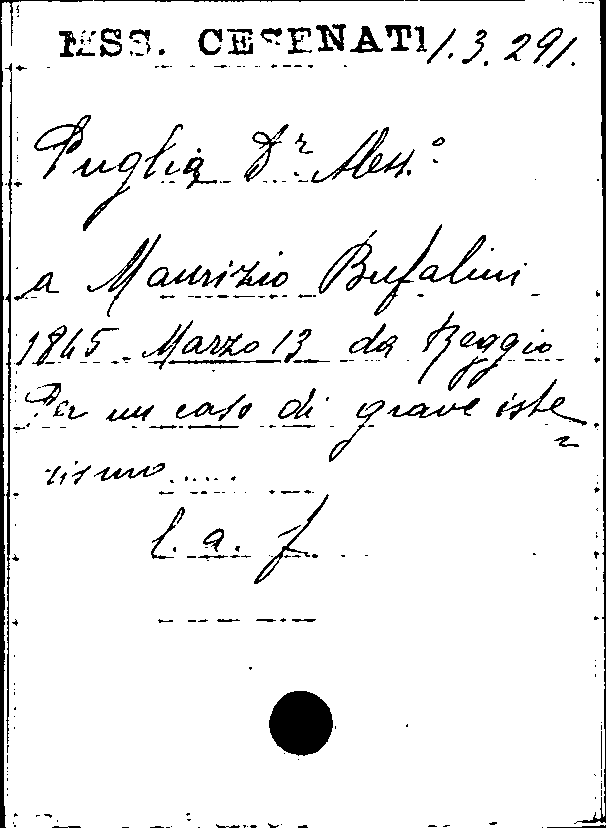 MSS. CESENATI 1.3.291.
Puglia Dr. Aless.o
a Maurizio Bufalini
1865 Marzo 13 da Reggio
Per un caso di grave iste=
rismo.....
l. a. f.